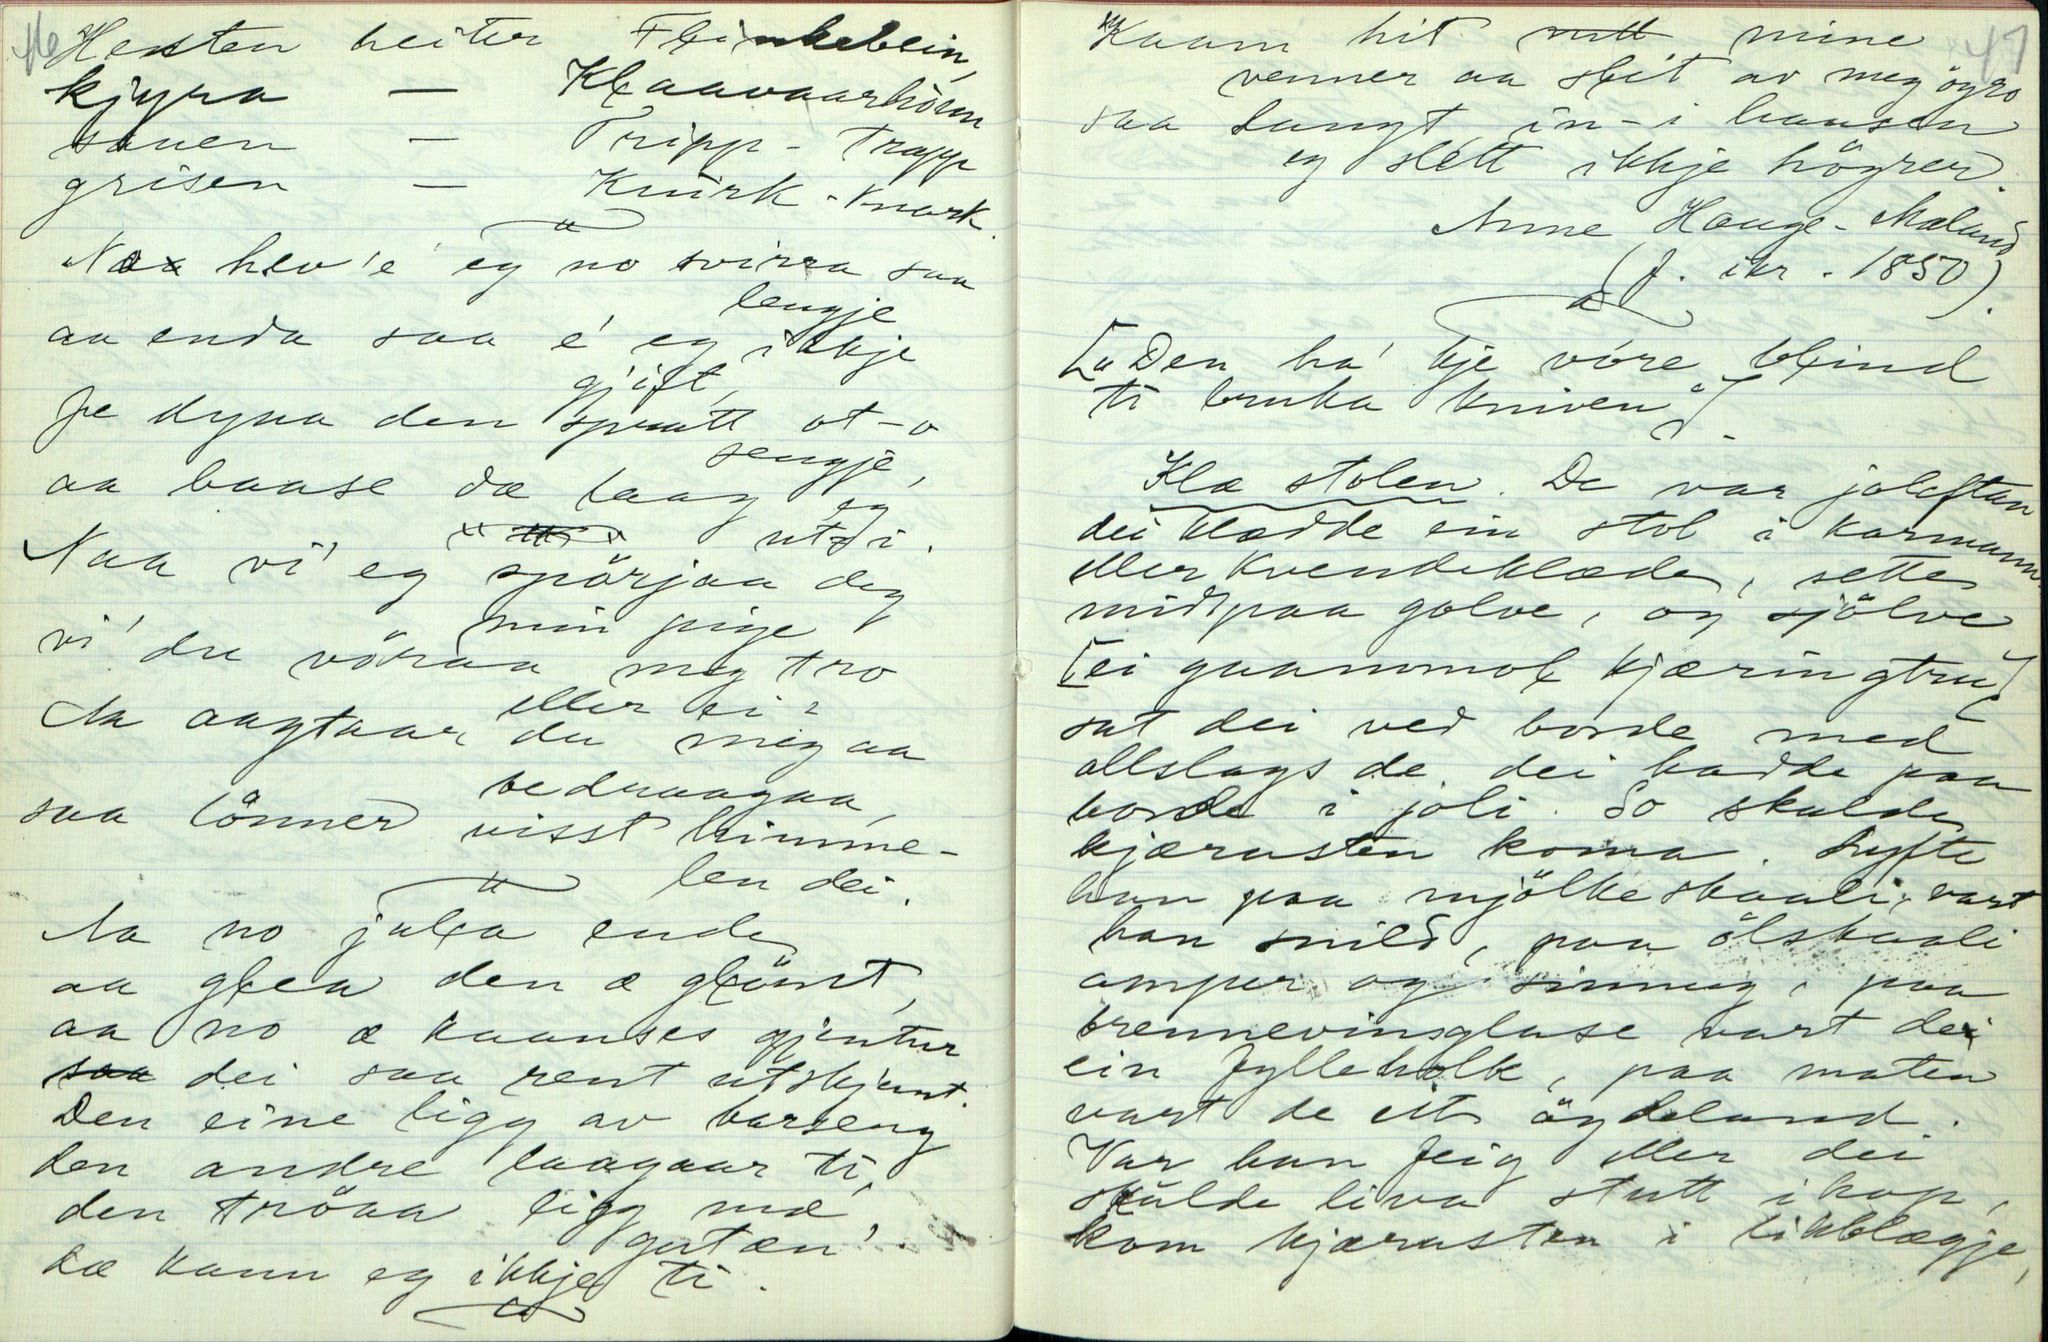 46
Hesten heiter Fleinkebein,
kjyra — Klaavaarhönn
sauen — Tripp-Trapp
grisen — Knirk-Knark.
Naa hev'e eg no svirra saa
lengje
aa enda saa é eg ikkje
gjift,
fe dyna den spratt ot-o
sengje,
aa baase dæ laag eg
utsi.
Naa vi' eg spörjaa deg
min pige
vi' du våraa meg tro
eller ei?
Aa aagtaar du meg aa
bedraagaa,
saa lönner visst himme-
len dei.
Aa no jula ende
aa glea den æ glömt,
aa no æ kaanses gjentur
saa dei saa rent utskjemt.
Den eine ligg av barseng
den andre laagaar ti,
den tröaa ligg mæ
gutæn'.
dæ kann eg ikkje ti.
47
"Kaam hit mitt mine
venner aa slit av meg öyro
saa langt in-i hausen
eg slétt ikkje höyrer.
Anne Hauge-Mæland
(f. ikr. 1850).
["Den ha' kje vóre blind
ti bruka kniven"]
Klæ stolen. De var joleftan
dei klædde ein stol i karmann-
eller kvendeklæde, sette
midtpaa golve, og sjölve
[ei gaammol kjæringtru]
sat dei ved borde med
allslags de dei hadde paa
borde i joli. So skulde
kjærasten koma. Lyfte
han paa mjölkeskaali, vart
han snild, paa ölskaali
amper og sinnug, paa
brennevinsglase vart dei
ein fylleholk, paa maten
vart de ett öydeland.
Var han feig eller dei
skulde liva stutt ihop,
kom kjærasten i likklægje,